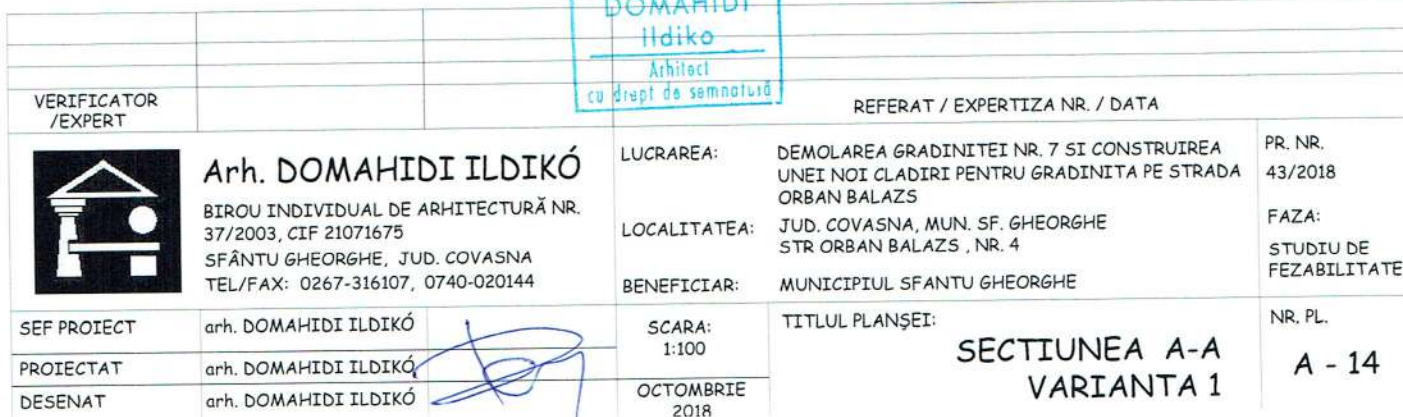 DOMAHIDI
Ildiko
Arhitect
cu drept de semnatură
VERIFICATOR
/EXPERT
REFERAT / EXPERTIZA NR. / DATA
Arh. DOMAHIDI ILDIKÓ
BIROU INDIVIDUAL DE ARHITECTURĂ NR.
37/2003, CIF 21071675
SFÂNTU GHEORGHE, JUD. COVASNA
TEL/FAX: 0267-316107, 0740-020144
LUCRAREA:
DEMOLAREA GRADINITEI NR. 7 SI CONSTRUIREA
UNEI NOI CLADIRI PENTRU GRADINITA PE STRADA
ORBAN BALAZS
LOCALITATEA:
JUD. COVASNA, MUN. SF. GHEORGHE
STR ORBAN BALAZS , NR. 4
BENEFICIAR:
MUNICIPIUL SFANTU GHEORGHE
PR. NR.
43/2018
FAZA:
STUDIU DE
FEZABILITATE
SEF PROIECT
arh. DOMAHIDI ILDIKÓ
PROIECTAT
arh. DOMAHIDI ILDIKÓ
DESENAT
arh. DOMAHIDI ILDIKÓ
SCARA:
1:100
OCTOMBRIE
2018
TITLUL PLANŞEI:
SECTIUNEA A-A
VARIANTA 1
NR. PL.
A - 14